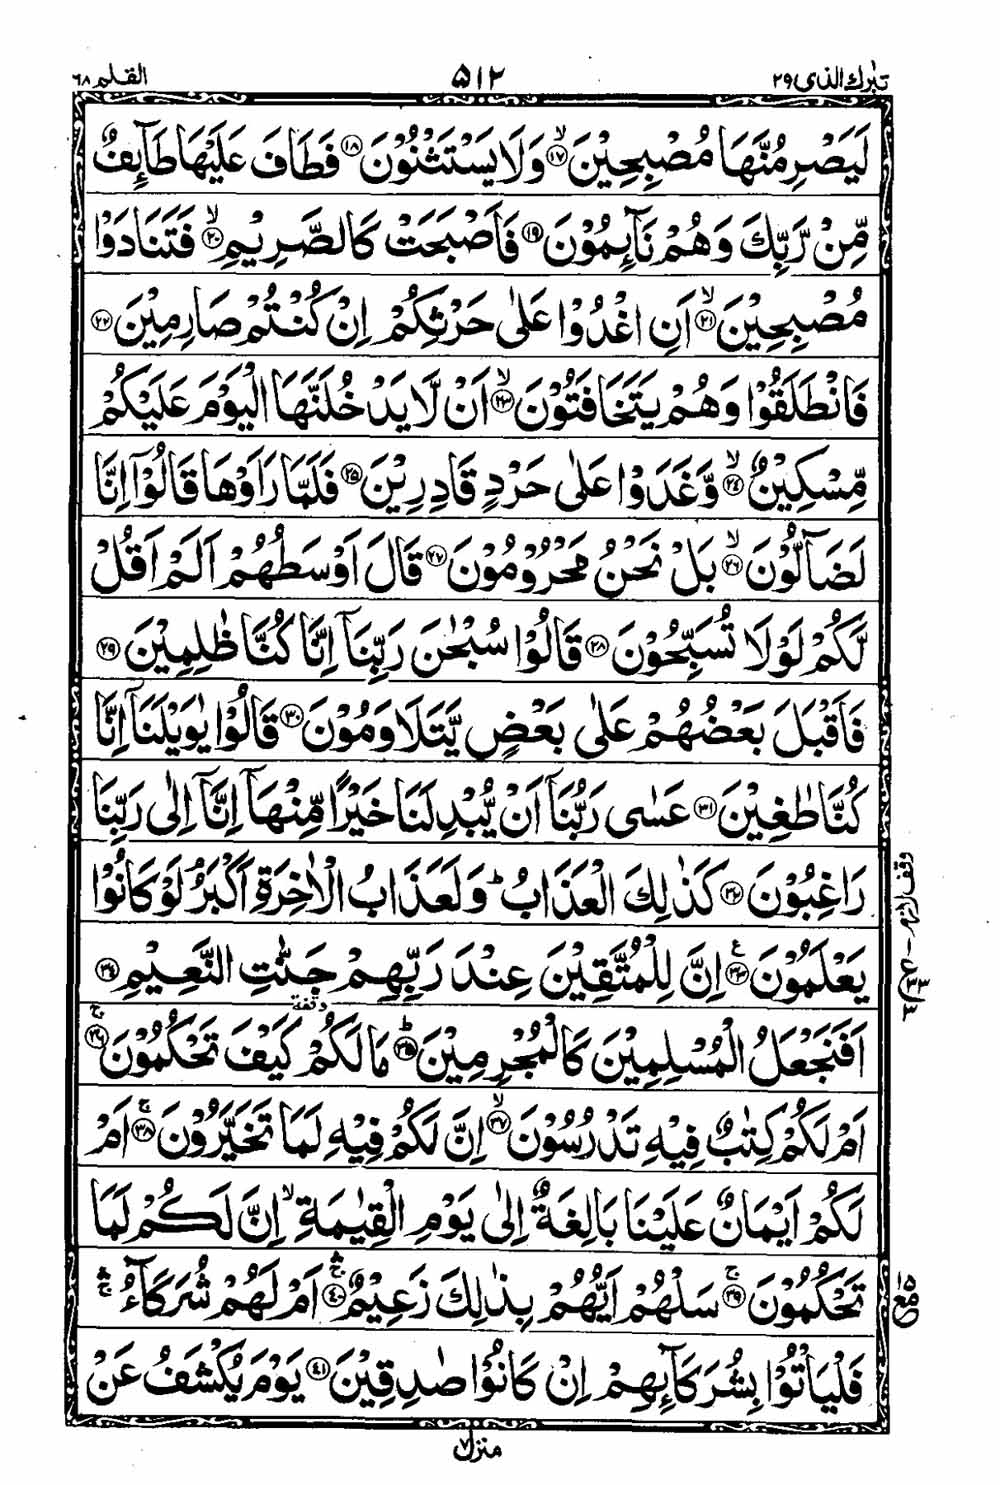 تبٰرك الذی ۲۹ ۵۱۲ القلم ۶۸
لَيَصْرِمُنَّهَا مُصْبِحِيْنَ ۙ‏﴿۱۷﴾ وَلَا يَسْتَثْنُوْنَ ‏﴿۱۸﴾ فَطَافَ عَلَيْهَا طَآٮِٕفٌ
مِّنْ رَّبِّكَ وَهُمْ نَآٮِٕمُوْنَ ‏﴿۱۹﴾ فَاَصْبَحَتْ كَالصَّرِيْمِ ۙ‏﴿۲۰﴾ فَتَنَادَوْا
مُصْبِحِيْنَ ۙ‏﴿۲۱﴾ اَنِ اغْدُوْا عَلٰى حَرْثِكُمْ اِنْ كُنْتُمْ صَارِمِيْنَ ‏﴿۲۲﴾
فَانْطَلَقُوْا وَهُمْ يَتَخَافَتُوْنَ ۙ‏﴿۲۳﴾ اَنْ لَّا يَدْخُلَنَّهَا الْيَوْمَ عَلَيْكُمْ
مِّسْكِيْنٌ ۙ‏﴿۲۴﴾ وَّغَدَوْا عَلٰى حَرْدٍ قَادِرِيْنَ ‏﴿۲۵﴾ فَلَمَّا رَاَوْهَا قَالُوْۤا اِنَّا
لَضَآلُّوْنَ ۙ‏﴿۲۶﴾ بَلْ نَحْنُ مَحْرُوْمُوْنَ ‏﴿۲۷﴾ قَالَ اَوْسَطُهُمْ اَلَمْ اَقُلْ
لَّكُمْ لَوْلَا تُسَبِّحُوْنَ ‏﴿۲۸﴾ قَالُوْا سُبْحٰنَ رَبِّنَاۤ اِنَّا كُنَّا ظٰلِمِيْنَ ‏﴿۲۹﴾
فَاَقْبَلَ بَعْضُهُمْ عَلٰى بَعْضٍ يَّتَلَاوَمُوْنَ ‏﴿۳۰﴾ قَالُوْا يٰوَيْلَنَاۤ اِنَّا
كُنَّا طٰغِيْنَ ‏﴿۳۱﴾ عَسٰى رَبُّنَاۤ اَنْ يُّبْدِلَنَا خَيْرًا مِّنْهَاۤ اِنَّاۤ اِلٰى رَبِّنَا
رَاغِبُوْنَ ‏﴿۳۲﴾ كَذٰلِكَ الْعَذَابُ ؕ وَلَعَذَابُ الْاٰخِرَةِ اَكْبَرُ ۘ لَوْ كَانُوْا
يَعْلَمُوْنَ ‏﴿۳۳﴾ ع اِنَّ لِلْمُتَّقِيْنَ عِنْدَ رَبِّهِمْ جَنّٰتِ النَّعِيْمِ ‏﴿۳۴﴾
اَفَنَجْعَلُ الْمُسْلِمِيْنَ كَالْمُجْرِمِيْنَ ؕ‏﴿۳۵﴾ مَا لَكُمْ وقفة كَيْفَ تَحْكُمُوْنَ ۚ‏﴿۳۶﴾
اَمْ لَكُمْ كِتٰبٌ فِيْهِ تَدْرُسُوْنَ ۙ‏﴿۳۷﴾ اِنَّ لَكُمْ فِيْهِ لَمَا تَخَيَّرُوْنَ ۚ‏﴿۳۸﴾ اَمْ
لَكُمْ اَيْمَانٌ عَلَيْنَا بَالِغَةٌ اِلٰى يَوْمِ الْقِيٰمَةِ ۙ اِنَّ لَكُمْ لَمَا
تَحْكُمُوْنَ ۚ‏﴿۳۹﴾ سَلْهُمْ اَيُّهُمْ بِذٰلِكَ زَعِيْمٌ ۛۚ‏﴿۴۰﴾ اَمْ لَهُمْ شُرَكَآءُ ۛۚ
فَلْيَاْتُوْا بِشُرَكَآٮِٕهِمْ اِنْ كَانُوْا صٰدِقِيْنَ ‏﴿۴۱﴾ يَوْمَ يُكْشَفُ عَنْ
منزل ۷